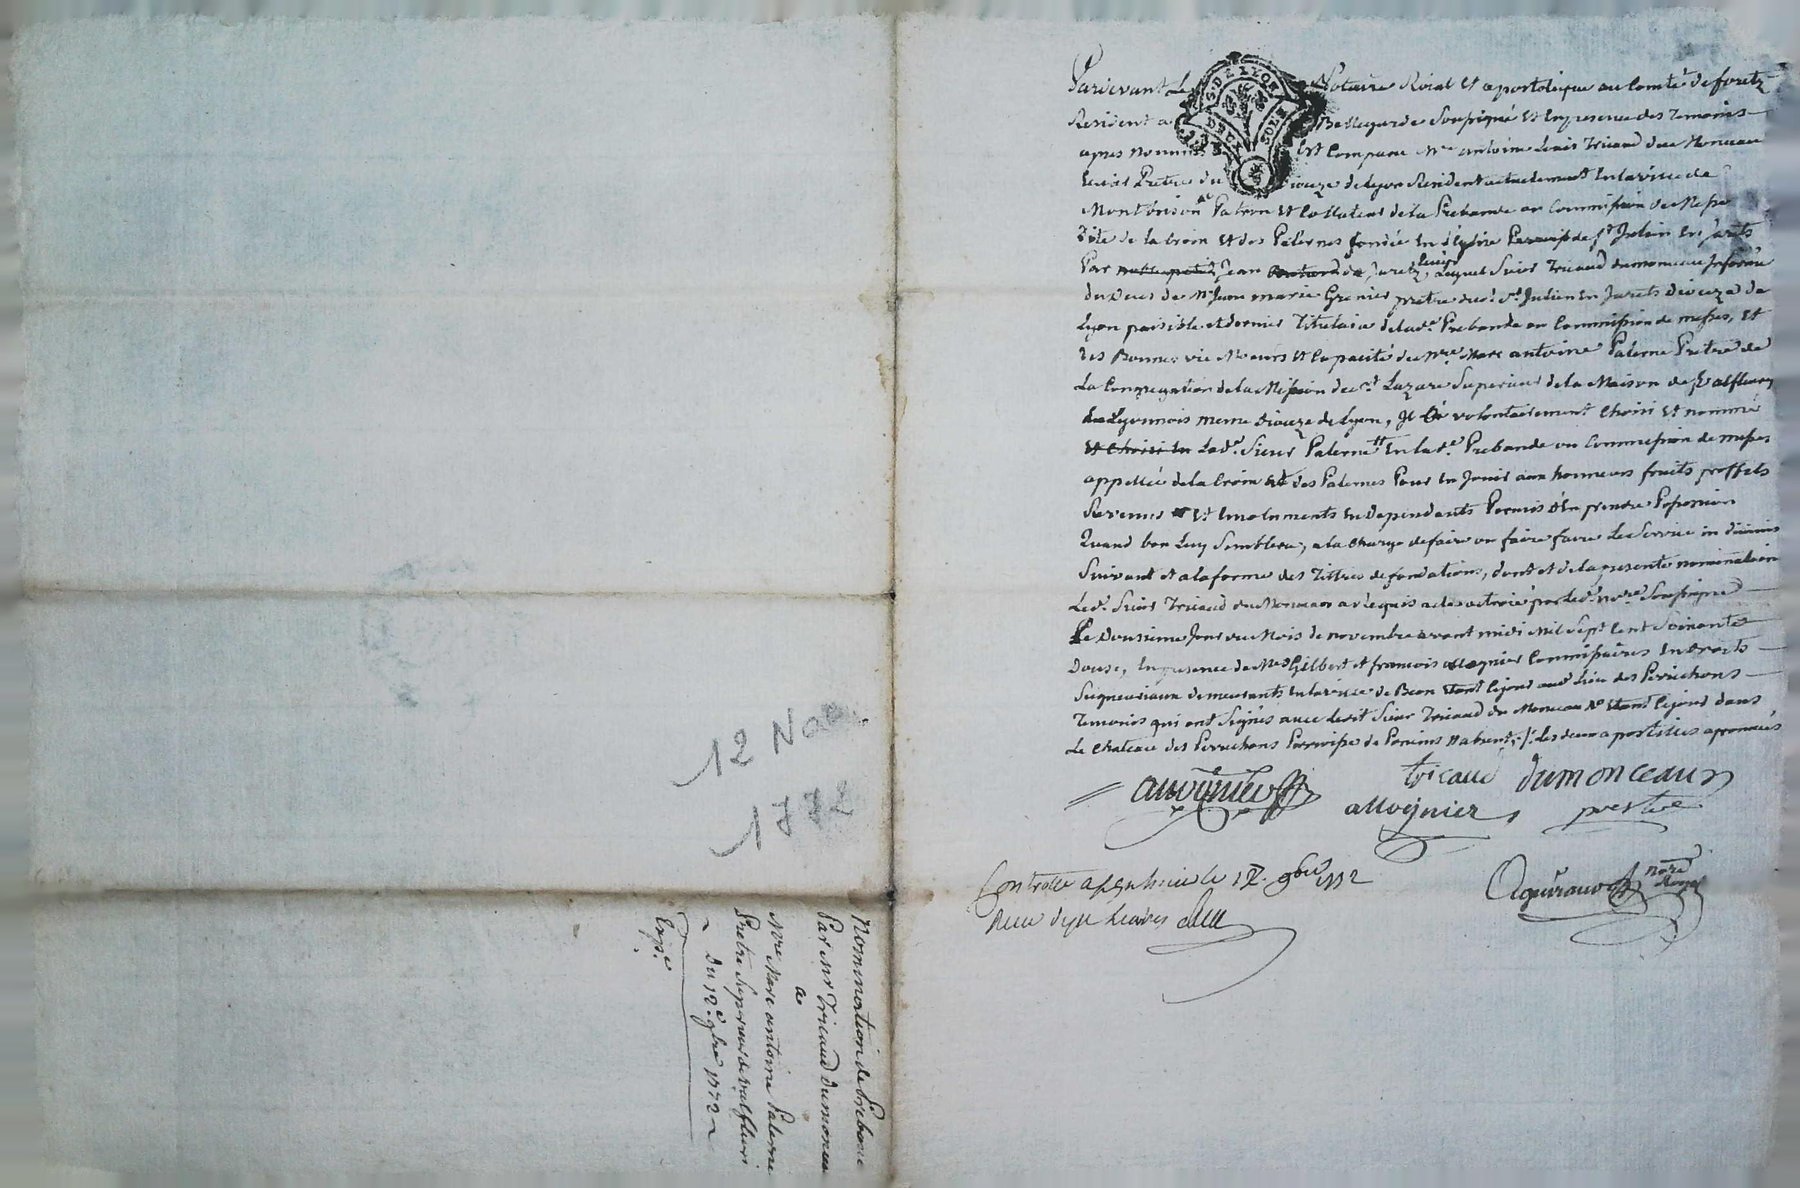 Pardevant Le Notaire Roial Et apostolique au Comté de foretz
Resident a Bellegarde Soussigné Et En presence des Temoins
apres nommés Est Comparu Mre antoine Louis Tricaud du Monceau
Pretre du Diocéze de Lyon Resident actuelement En la ville de
Montbrison Patron Et Collateur de la Prebande ou Commission de Messes
dite de la Croix Et des Palernes fondée En l'Eglise Parroissiale de St Julien En Jarets
Par Jean de Jaretz, Lequel Sieur Tricaud dumonceau Informé
du Deces de Mre Jean marie Grenier pretre dud. St Julien En Jarets Diocéze de
Lyon paisible et dernier Titulaire de lade. Prebande ou Commission de messes, Et
des Bonnes vie Moeurs Et Capacité de Mre Marc antoine Palerne Pretre de
La Congregation de la Mission de St Lazare Superieur de la Maison de Valfleury
En Lyonnois meme Diocéze de Lyon, Il a volontairement Choisi Et nommé
Et Choisi Led. Sieur Palerne En lade. Prebande ou Commission de messes
appellée de la Croix Et des Palernes Pour En Jouir aux honneurs fruits proffits
Revenus Et Emoluments En Dependants Permis d'En prendre Possession
Quand bon Luy Semblera, a la Charge de faire ou faire faire Le Service in divinis
Suivant et a la forme des Tittres de fondations, dont et de la presente nomination
Led. Sieur Tricaud du Monceau a requis acte octroié par Led. nore Soussigné
Le Douzieme Jour du Mois de novembre avant midi Mil Sept Cent Soixante
Douze, En presence de Mes Gilbert et francois allognier Commissaires En droits
Seigneuriaux demeurants En la ville de Beon Etant Ce jour aud Lieu des Perrichons
Temoins qui ont Signés avec Ledit Sieur Tricaud du Monceau Etant Ce jour dans
Le Chateau des Perrichons Parroisse de Poncins Les deux apostilles approuvées
tricaud dumonceaux
allognier prestre
nore Royal
Controllé a le 12. 9bre 1772
Recu
12 Nov.
1772
Nomination de Prebande
Par Mr Tricaud Dumonceau
a
Mre Marc antoine Palerne
Pretre Superieur de Valfleuri
Du 12e 9bre 1772
Expe.